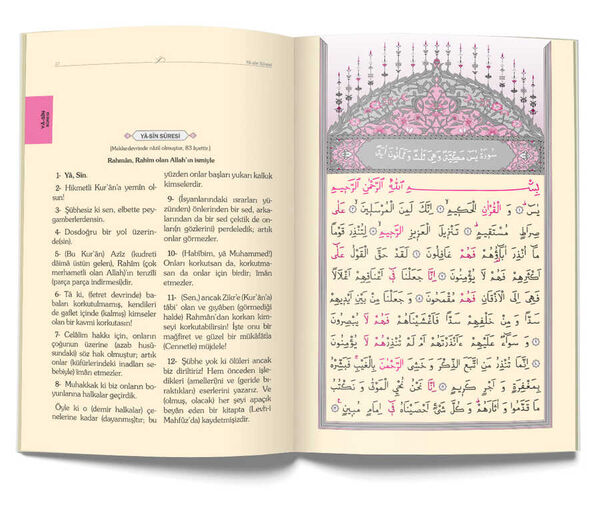 Yâ-sîn Sûresi
YÂ-SÎN
SÛRESİ
YÂ-SÎN SÛRESİ
(Mekke devrinde nâzil olmuştur, 83 âyettir.)
Rahmân, Rahîm olan Allah'ın ismiyle
1- Yâ, Sîn.
2- Hikmetli Kur'ân'a yemîn ol-
sun!
3- Şübhesiz ki sen, elbette pey-
gamberlerdensin.
4- Dosdoğru bir yol üzerin-
de(sin).
5- (Bu Kur'ân) Azîz (kudreti
dâimâ üstün gelen), Rahîm (çok
merhametli olan Allah)'ın tenzîli
(parça parça indirmesi)dir.
6- Tâ ki, (fetret devrinde) ba-
baları korkutulmamış, kendileri
de gaflet içinde (kalmış) kimseler
olan bir kavmi korkutasın!
7- Celâlim hakkı için, onların
çoğunun üzerine (azab husû-
sundaki) söz hak olmuştur; artık
onlar (küfürlerindeki inadları se-
bebiyle) îmân etmezler.
8- Muhakkak ki biz onların bo-
yunlarına halkalar geçirdik.
Öyle ki o (demir halkalar) çe-
nelerine kadar (dayanmış)tır; bu
yüzden onlar başları yukarı kalkık
kimselerdir.
9- (İsyanlarındaki ısrarları yü-
zünden) önlerinden bir sed, arka-
larından da bir sed çektik de on-
ları(n gözlerini) perdeledik; artık
onlar görmezler.
10- (Habîbim, yâ Muhammed!)
Onları korkutsan da, korkutma-
san da onlar için birdir; îmân
etmezler.
11- (Sen,) ancak Zikr'e (Kur'ân'a)
tâbi' olan ve gıyâben (görmediği
halde) Rahmân'dan korkan kim-
seyi korkutabilirsin! İşte onu bir
mağfiret ve güzel bir mükâfâtla
(Cennetle) müjdele!
12- Şübhe yok ki ölüleri ancak
biz diriltiriz! Hem önceden işle-
dikleri (amelleri)ni ve (geride bı-
raktıkları) eserlerini yazarız. Ve
(olmuş, olacak) her şeyi apaçık
beyân eden bir kitapta (Levh-i
Mahfûz'da) kaydetmişizdir.
سُورَةُ يٰسٓ مَكِّيَّةٌ وَهِيَ ثَلٰثٌ وَثَمَانُونَ اٰيَةً
بِسْمِ اللّٰهِ الرَّحْمٰنِ الرَّحِيمِ
يٰسٓ ﴿١﴾ وَ الْقُرْاٰنِ الْحَكِيمِ ﴿٢﴾ اِنَّكَ لَمِنَ الْمُرْسَلِينَ ﴿٣﴾ عَلٰى
صِرَاطٍ مُسْتَقِيمٍ ﴿٤﴾ تَنْزِيلَ الْعَزِيزِ الرَّحِيمِ ﴿٥﴾ لِتُنْذِرَ قَوْمًا
مَٓا اُنْذِرَ اٰبَٓاؤُهُمْ فَهُمْ غَافِلُونَ ﴿٦﴾ لَقَدْ حَقَّ الْقَوْلُ عَلٰٓى
اَكْثَرِهِمْ فَهُمْ لَا يُؤْمِنُونَ ﴿٧﴾ اِنَّا جَعَلْنَا ف۪ٓى اَعْنَاقِهِمْ اَغْلَالًا
فَهِيَ اِلَى الْاَذْقَانِ فَهُمْ مُقْمَحُونَ ﴿٨﴾ وَ جَعَلْنَا مِنْ بَيْنِ اَيْد۪يهِمْ
سَدًّا وَ مِنْ خَلْفِهِمْ سَدًّا فَاَغْشَيْنَاهُمْ فَهُمْ لَا يُبْصِرُونَ
﴿٩﴾ وَ سَوَٓاءٌ عَلَيْهِمْ ءَاَنْذَرْتَهُمْ اَمْ لَمْ تُنْذِرْهُمْ لَا يُؤْمِنُونَ
﴿١٠﴾ اِنَّمَا تُنْذِرُ مَنِ اتَّبَعَ الذِّكْرَ وَ خَشِيَ الرَّحْمٰنَ بِالْغَيْبِ فَبَشِّرْهُ
بِمَغْفِرَةٍ وَ اَجْرٍ كَر۪يمٍ ﴿١١﴾ اِنَّا نَحْنُ نُحْيِ الْمَوْتٰى وَ نَكْتُبُ
مَا قَدَّمُوا وَ اٰثَارَهُمْ وَ كُلَّ شَيْءٍ اَحْصَيْنَاهُ ف۪ٓى اِمَامٍ مُب۪ينٍ ﴿١٢﴾